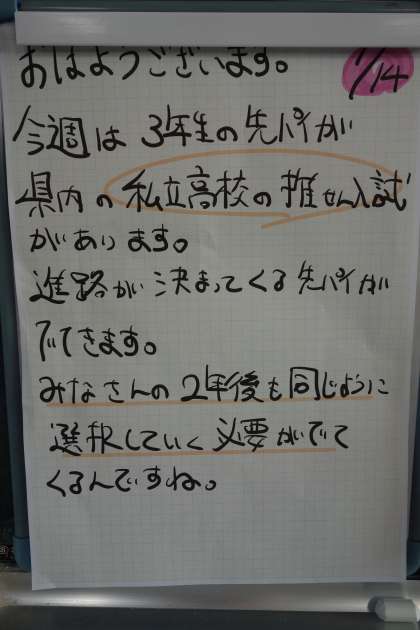 おはようございます。 1/14
今週は3年生の先パイが
県内の私立高校の推せん入試
があります。
進路が決まってくる先パイが
でてきます。
みなさんの2年後も同じように
選択していく必要がでて
くるんですね。